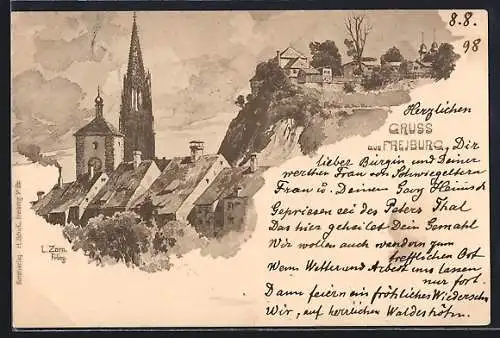 8.8.
98
Herzlichen
GRUSS
aus FREIBURG, Dir
lieber Bürgin und Deiner
werthen Frau den Schwiegeltern
Frau u. Deinem Georg Heinisch
Gepriesen sei des Peters Thal
Das hier geheilet Dein Gemahl
Wir wollen auch wandern zum
trefflichen Ort
Wenn Wetter und Arbeit uns lassen
nur fort.
Dann feiern ein fröhliches Wiedersehn
Wir, auf herrlichen Waldeshöhn.
L. Zorn.
Frbg.
Kunstverlag
Freiburg